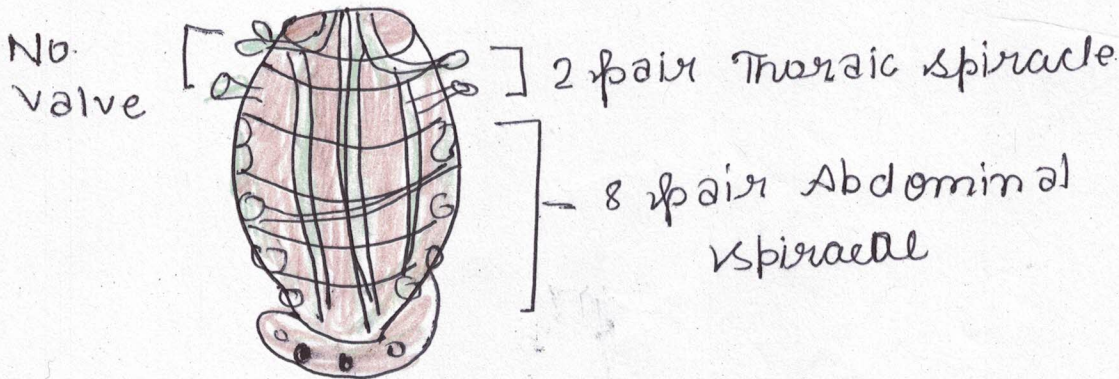 No
Valve
2 pair Thoraic spiracle
8 pair Abdominal
spiracle